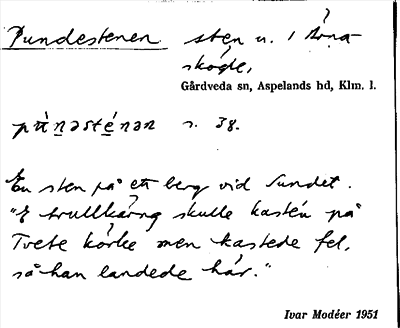 Pundestenen sten u. i Åna-
skógle,
Gårdveda sn, Aspelands hd, Klm. l.
pu̇̀nəsténən s. 38.
En sten på ett berg vid Sundet.
"E trullkäring skulle kastén på
Tvete körke men kastede fel,
så han landede här."
Ivar Modéer 1951